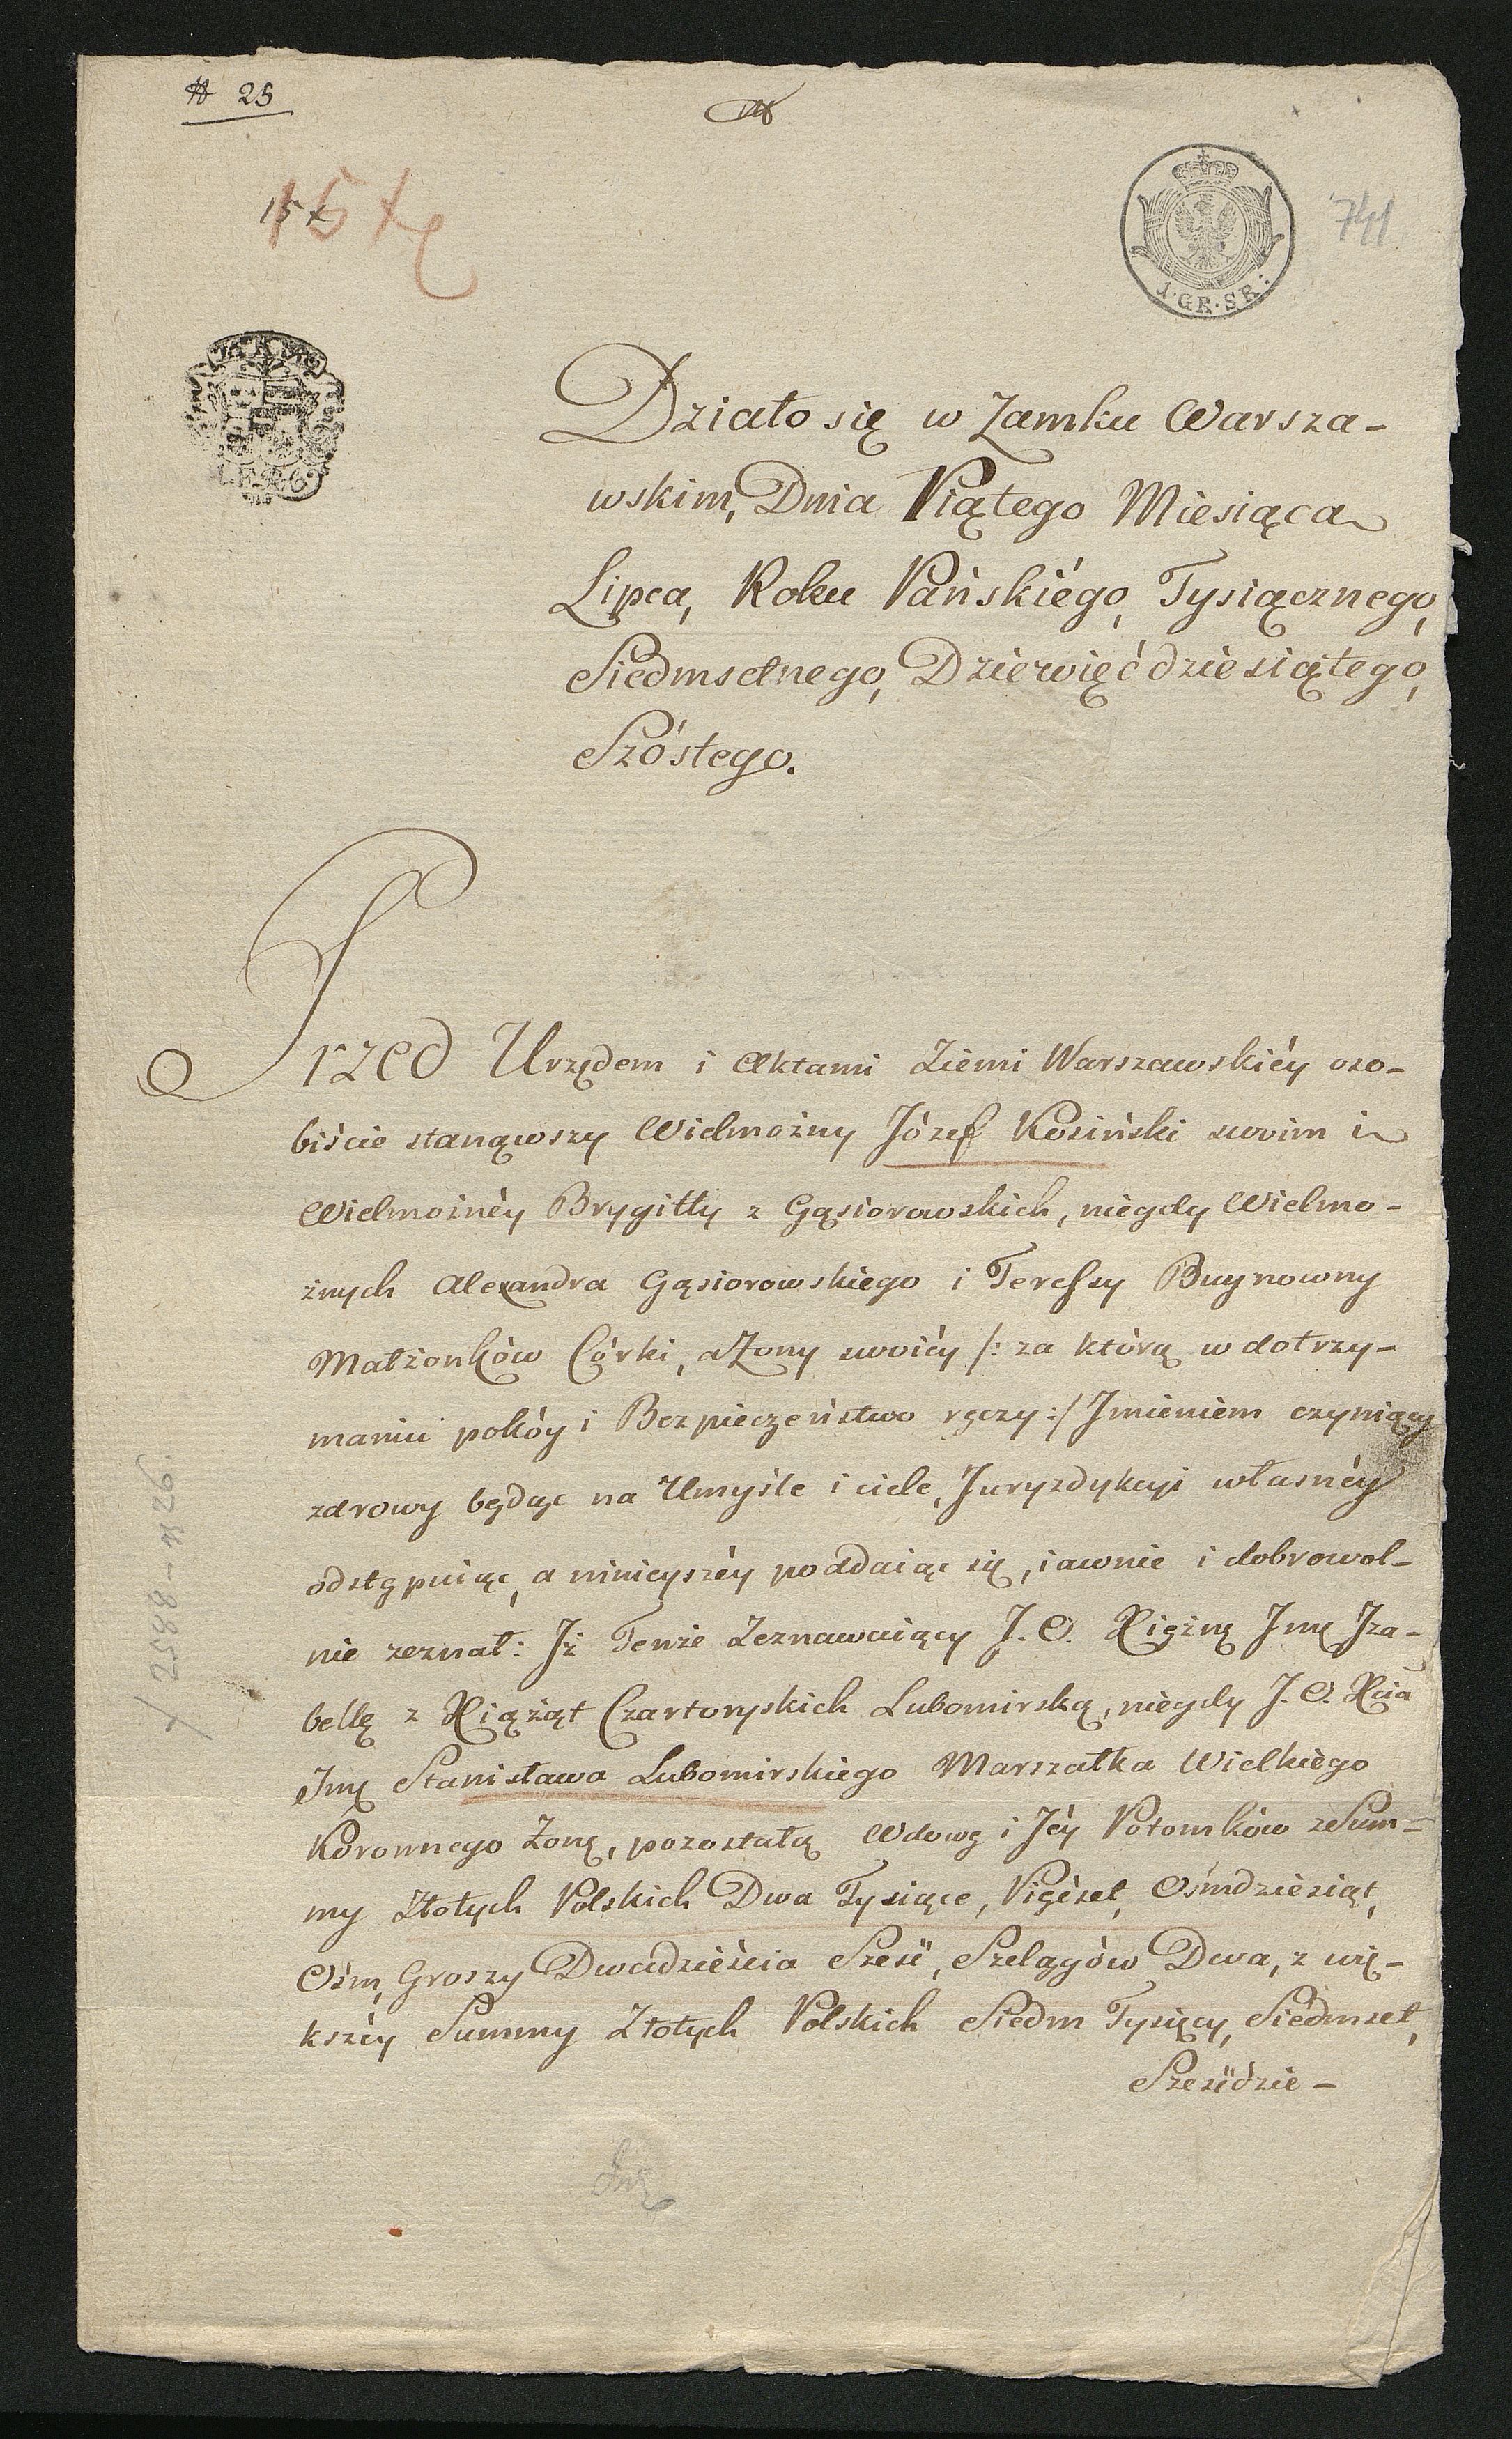 # 25
15 x
15 tę
741
1·GR·SR:
Działo się w Zamku Warsza-
wskim, Dnia Piątego Miesiąca
Lipca, Roku Pańskiégo, Tysiącznego,
Siedmsetnego, Dziewięćdziesiątego,
Szóstego.
Przed Urzędem i Aktami Ziemi Warszawskiéy oso-
biście stanąwszy Wielmożny Józef Kosiński swoim i
Wielmożnéy Brygitty z Gąsiorowskich, niegdy Wielmo-
żnych Alexandra Gąsiorowskiego i Teressy Buynowny
Małżonków Córki, a Żony swoiéy /: za którą w dotrzy-
maniu pokóy i Bezpieczeństwo ręczy :/ Jmieniem czyniący
zdrowy będąc na Umyśle i ciele, Juryzdykcyi własnéy
odstępuiąc, a ninieyszéy poddaiąc się, iawnie i dobrowol-
nie zeznał: Jż Tenże Zeznawaiący J. O. Xiężnę Jmę Jza-
bellę z Xiążąt Czartoryskich Lubomirską, niegdy J. O. Xcia
Jmę Stanisława Lubomirskiego Marszałka Wielkiégo
Koronnego Żonę, pozostałą Wdowę i Jéy Potomków z Sum-
my Złotych Polskich Dwa Tysiące, Pięćset, Ośmdziesiąt,
Ośm, Groszy Dwadzieścia Sześć, Szelągów Dwa, z wię-
kszéy Summy Złotych Polskich Siedm Tysięcy, Siedmset,
Sześćdzie-